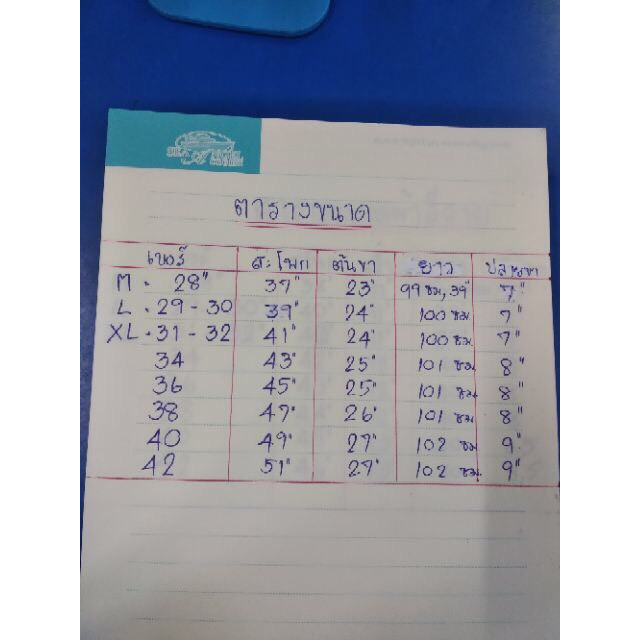 ตารางขนาด
เบอร์ สะโพก ต้นขา ยาว ปลายขา
M - 28" 37" 23" 99 ซม, 39" 7"
L - 29 - 30 39" 24" 100 ซม 7"
XL - 31 - 32 41" 24" 100 ซม 7"
34 43" 25" 101 ซม 8"
36 45" 25" 101 ซม 8"
38 47" 26" 101 ซม 8"
40 49" 27" 102 ซม 9"
42 51" 27" 102 ซม. 9"